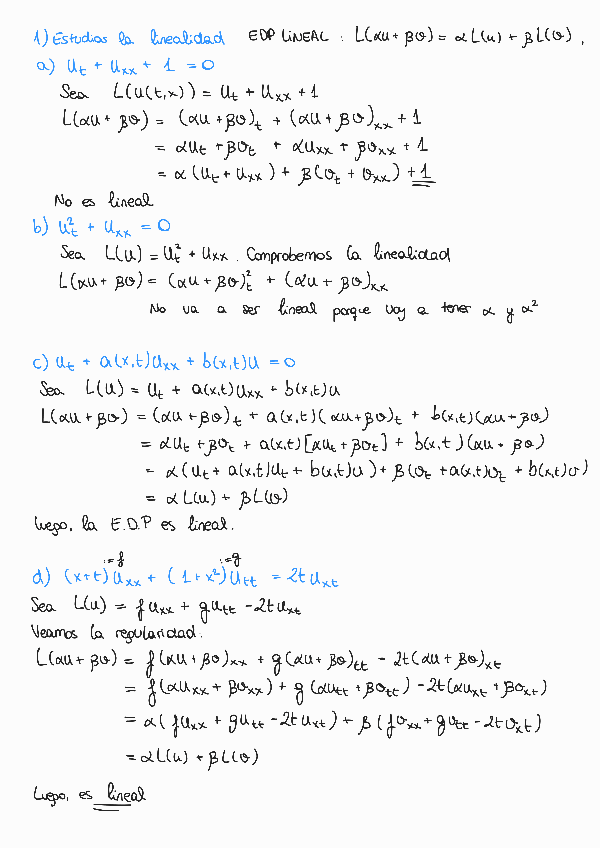 1) Estudios la linealidad EDP LINEAL : L(αu + βv) = αL(u) + βL(v) .
a) u_t + u_xx + 1 = 0
Sea L(u(t,x)) = u_t + u_xx + 1
L(αu + βv) = (αu + βv)_t + (αu + βv)_xx + 1
= αu_t + βv_t + αu_xx + βv_xx + 1
= α(u_t + u_xx) + β(v_t + v_xx) + 1
No es lineal
b) u_t² + u_xx = 0
Sea L(u) = u_t² + u_xx . Comprobemos la linealidad
L(αu + βv) = (αu + βv)_t² + (αu + βv)_xx
No va a ser lineal porque voy a tener α y α²
c) u_t + a(x,t)u_xx + b(x,t)u = 0
Sea L(u) = u_t + a(x,t)u_xx + b(x,t)u
L(αu + βv) = (αu + βv)_t + a(x,t)(αu + βv)_t + b(x,t)(αu + βv)
= αu_t + βv_t + a(x,t)[αu_t + βv_t] + b(x,t)(αu + βv)
= α(u_t + a(x,t)u_t + b(x,t)u) + β(v_t + a(x,t)v_t + b(x,t)v)
= αL(u) + βL(v)
Luego, la E.D.P es lineal.
:=f :=g
d) (x+t)u_xx + (1+x²)u_tt = 2t u_xt
Sea L(u) = f u_xx + g u_tt - 2t u_xt
Veamos la regularidad.
L(αu + βv) = f(αu + βv)_xx + g(αu + βv)_tt - 2t(αu + βv)_xt
= f(αu_xx + βv_xx) + g(αu_tt + βv_tt) - 2t(αu_xt + βv_xt)
= α(f u_xx + g u_tt - 2t u_xt) + β(f v_xx + g v_tt - 2t v_xt)
= αL(u) + βL(v)
Luego, es lineal